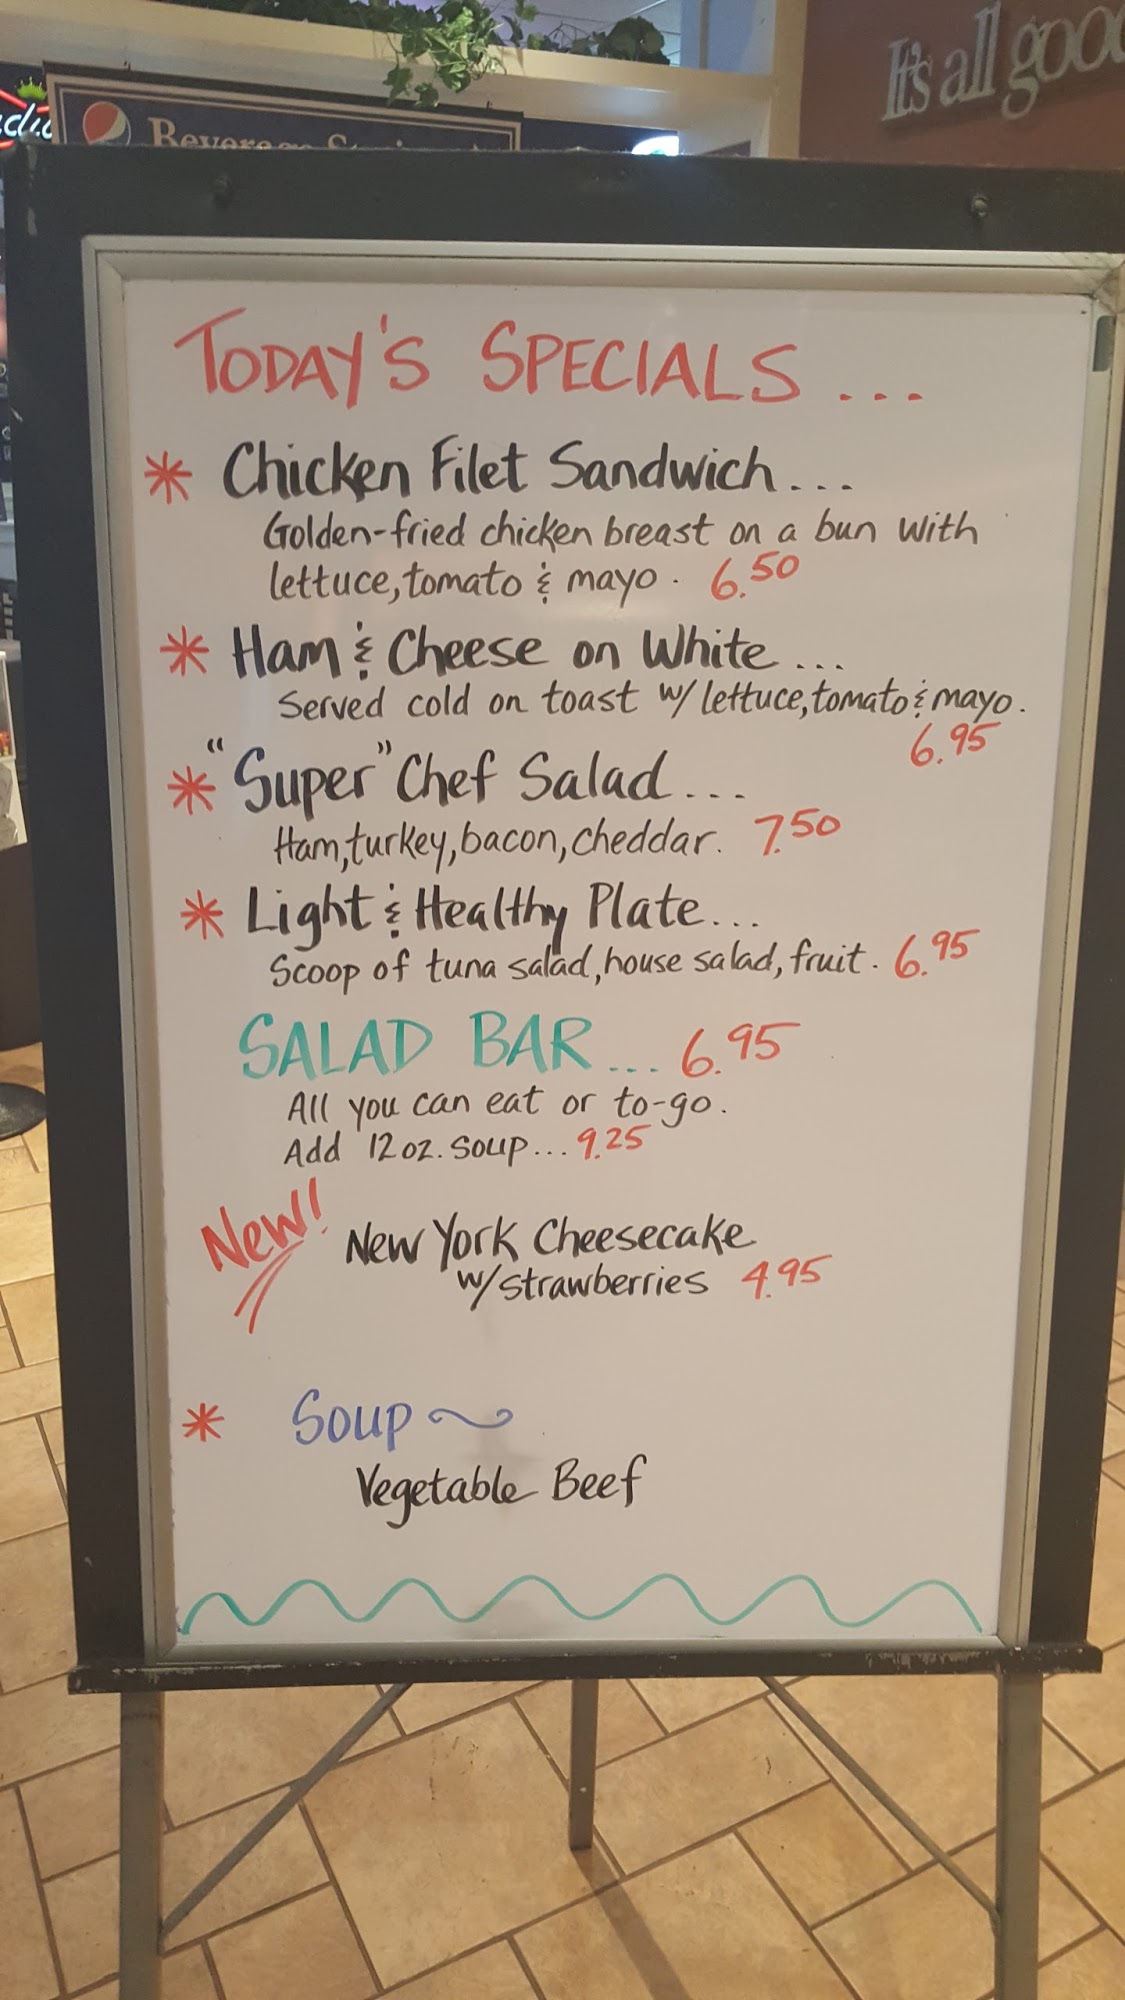 It's all good
Beverage
TODAY'S SPECIALS...
* Chicken Filet Sandwich...
Golden-fried chicken breast on a bun with
lettuce, tomato & mayo. 6.50
* Ham & Cheese on White...
Served cold on toast w/ lettuce, tomato & mayo.
6.95
* "Super" Chef Salad...
Ham, turkey, bacon, cheddar. 7.50
* Light & Healthy Plate...
Scoop of tuna salad, house salad, fruit. 6.95
SALAD BAR... 6.95
All you can eat or to-go.
Add 12 oz. soup... 9.25
New!
New York Cheesecake
w/strawberries 4.95
* Soup~
Vegetable Beef